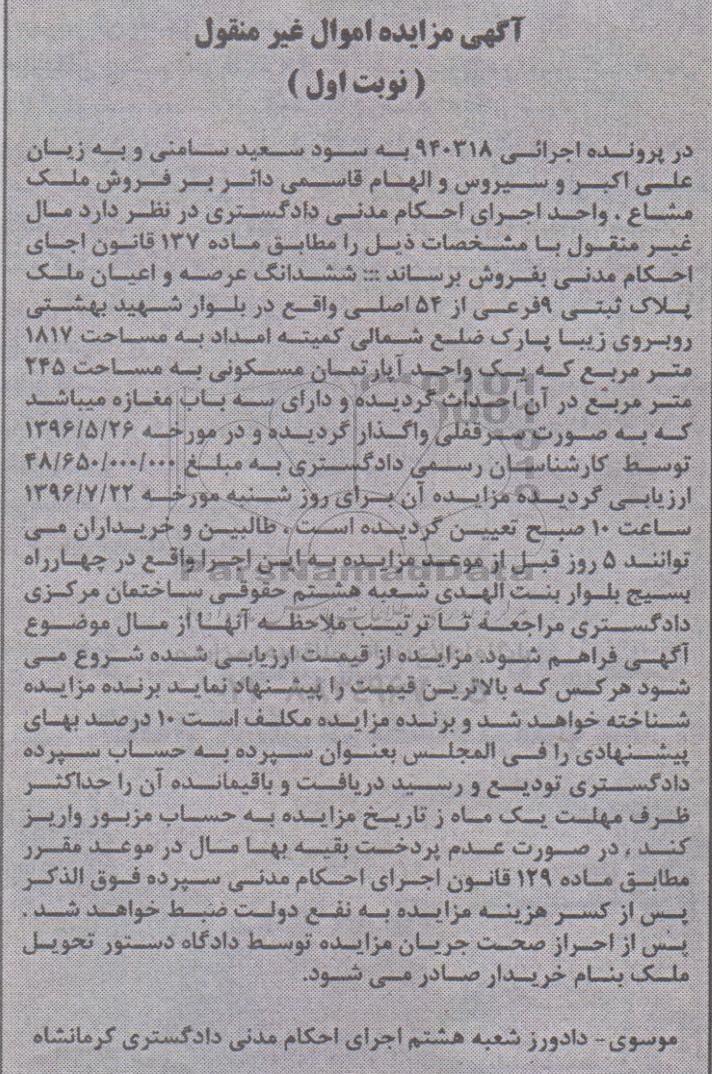 آگهی مزایده اموال غیر منقول
( نوبت اول )
در پرونده اجرائی ۹۴۰۳۱۸ به سود سعید سامنی و به زیان
علی اکبر و سیروس و الهام قاسمی دائر بر فروش ملک
مشاع ، واحد اجرای احکام مدنی دادگستری در نظر دارد مال
غیر منقول با مشخصات ذیل را مطابق ماده ۱۳۷ قانون اجای
احکام مدنی بفروش برساند ::: ششدانگ عرصه و اعیان ملک
پلاک ثبتی ۹فرعی از ۵۴ اصلی واقع در بلوار شهید بهشتی
روبروی زیبا پارک ضلع شمالی کمیته امداد به مساحت ۱۸۱۷
متر مربع که یک واحد آپارتمان مسکونی به مساحت ۲۴۵
متر مربع در آن احداث گردیده و دارای سه باب مغازه میباشد
که به صورت سرقفلی واگذار گردیده و در مورخه ۱۳۹۶/۵/۲۶
توسط کارشناسان رسمی دادگستری به مبلغ ۴۸/۶۵۰/۰۰۰/۰۰۰
ارزیابی گردیده مزایده آن برای روز شنبه مورخه ۱۳۹۶/۷/۲۲
ساعت ۱۰ صبح تعیین گردیده است ، طالبین و خریداران می
توانند ۵ روز قبل از موعد مزایده به این اجرا واقع در چهارراه
بسیج بلوار بنت الهدی شعبه هشتم حقوقی ساختمان مرکزی
دادگستری مراجعه تا ترتیب ملاحظه آنها از مال موضوع
آگهی فراهم شود. مزایده از قیمت ارزیابی شده شروع می
شود هرکس که بالاترین قیمت را پیشنهاد نماید برنده مزایده
شناخته خواهد شد و برنده مزایده مکلف است ۱۰ درصد بهای
پیشنهادی را فی المجلس بعنوان سپرده به حساب سپرده
دادگستری تودیع و رسید دریافت و باقیمانده آن را حداکثر
ظرف مهلت یک ماه ز تاریخ مزایده به حساب مزبور واریز
کند ، در صورت عدم پردخت بقیه بها مال در موعد مقرر
مطابق ماده ۱۲۹ قانون اجرای احکام مدنی سپرده فوق الذکر
پس از کسر هزینه مزایده به نفع دولت ضبط خواهد شد .
پس از احراز صحت جریان مزایده توسط دادگاه دستور تحویل
ملک بنام خریدار صادر می شود.
موسوی- دادورز شعبه هشتم اجرای احکام مدنی دادگستری کرمانشاه
ParsNamadData